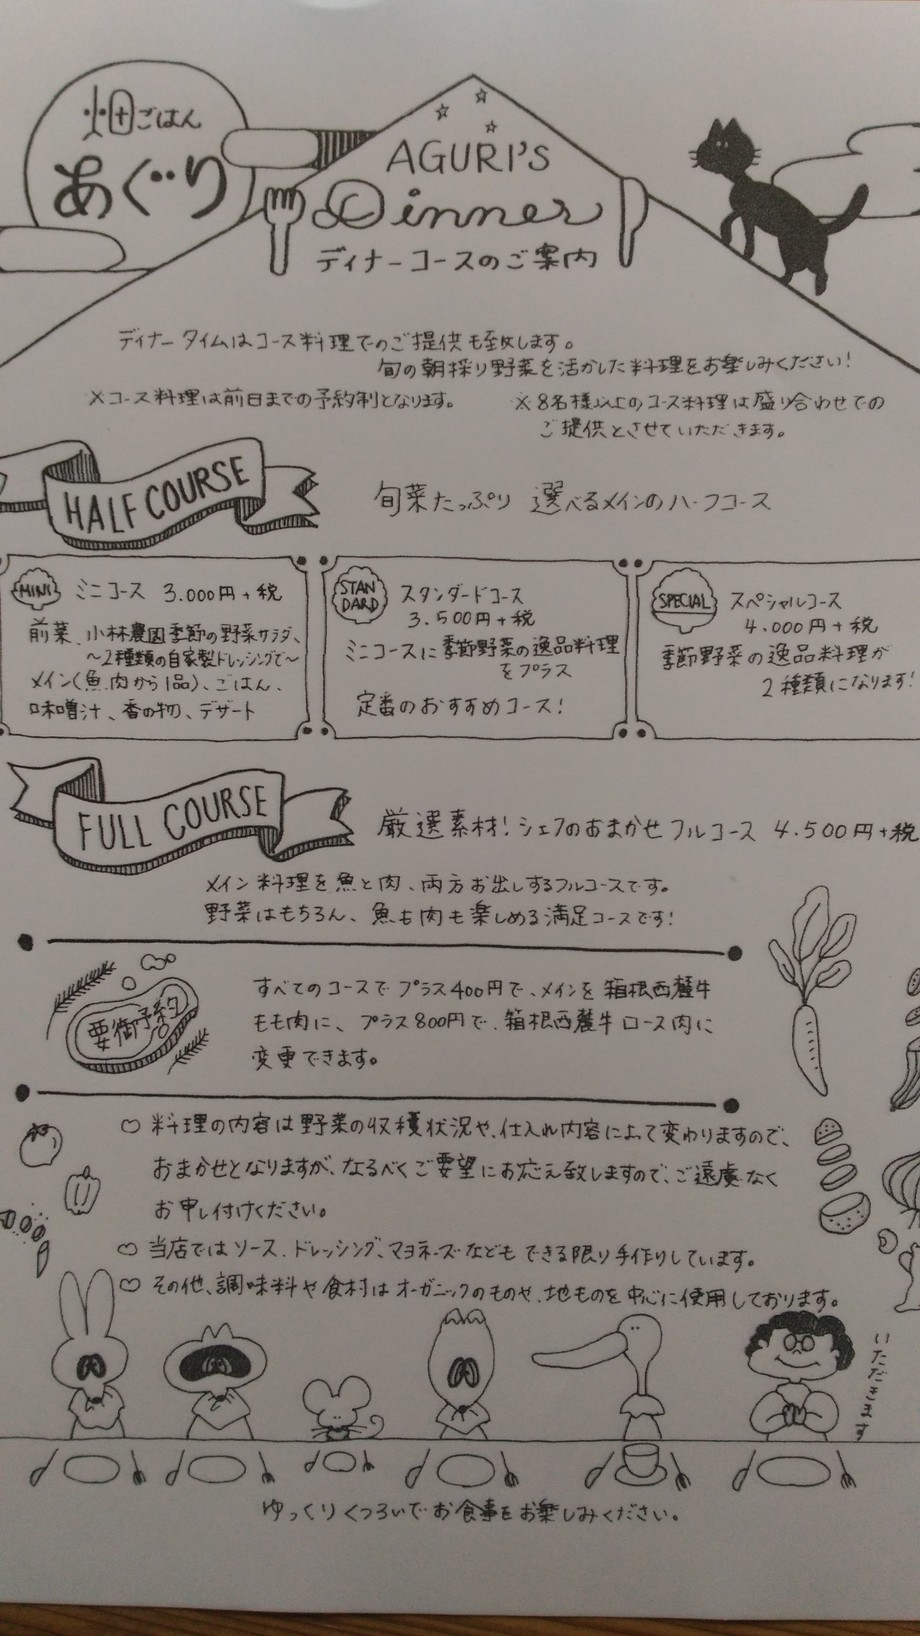 畑ごはん
あぐり
AGURI'S
Dinner
ディナーコースのご案内
ディナータイムはコース料理でのご提供も致します。
旬の朝採り野菜を活かした料理をお楽しみください!
※コース料理は前日までの予約制となります。
※8名様以上のコース料理は盛り合わせでの
ご提供とさせていただきます。
HALF COURSE
旬菜たっぷり 選べるメインのハーフコース
MINI ミニコース 3.000円+税
前菜、小林農園季節の野菜サラダ、
~2種類の自家製ドレッシングで~
メイン(魚、肉から1品)、ごはん、
味噌汁、香の物、デザート
STANDARD スタンダードコース
3.500円+税
ミニコースに季節野菜の逸品料理
をプラス
定番のおすすめコース!
SPECIAL スペシャルコース
4.000円+税
季節野菜の逸品料理が
2種類になります!
FULL COURSE
厳選素材!シェフのおまかせフルコース 4.500円+税
メイン料理を魚と肉、両方お出しするフルコースです。
野菜はもちろん、魚も肉も楽しめる満足コースです!
要御予約
すべてのコースでプラス400円で、メインを箱根西麓牛
もも肉に、プラス800円で、箱根西麓牛ロース肉に
変更できます。
♡料理の内容は野菜の収穫状況や、仕入れ内容によって変わりますので、
おまかせとなりますが、なるべくご要望にお応え致しますので、ご遠慮なく
お申し付けください。
♡当店ではソース、ドレッシング、マヨネーズなどもできる限り手作りしています。
♡その他、調味料や食材はオーガニックのものや、地ものを中心に使用しております。
いただきます
ゆっくりくつろいでお食事をお楽しみください。